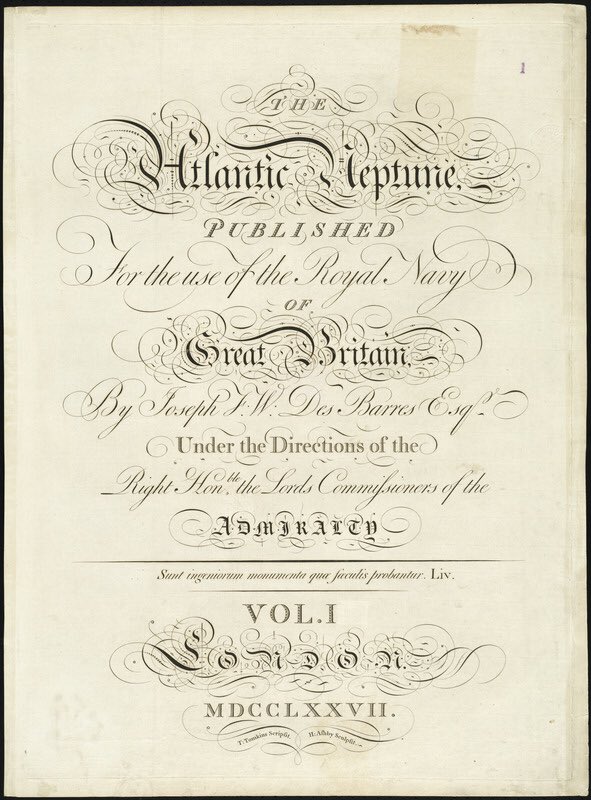 1
THE
Atlantic Neptune,
PUBLISHED
For the use of the Royal Navy
OF
Great Britain,
By Joseph F. W. Des Barres Esqr.
Under the Directions of the
Right Honble. the Lords Commiſsioners of the
ADMIRALTY
Sunt ingeniorum monumenta qua ſæculis probantur. LIV.
VOL. I
LONDON.
MDCCLXXVII.
T: Tomkins Scripſit. H: Aſhby Sculpſit.